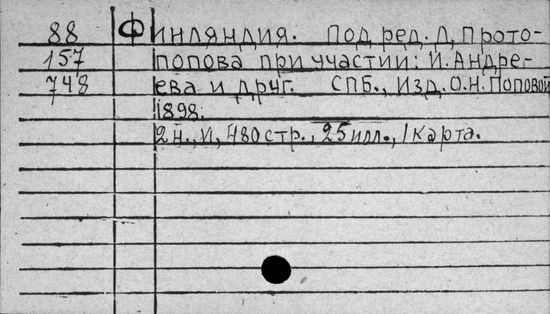 88 Финляндия. Под ред. Д, Прото-
157 попова при участии: И. Андре-
748 ева и друг. СПБ., Изд. О.Н. Поповой
1898.
2 н., И, 480 стр., 25 илл., 1 карта.